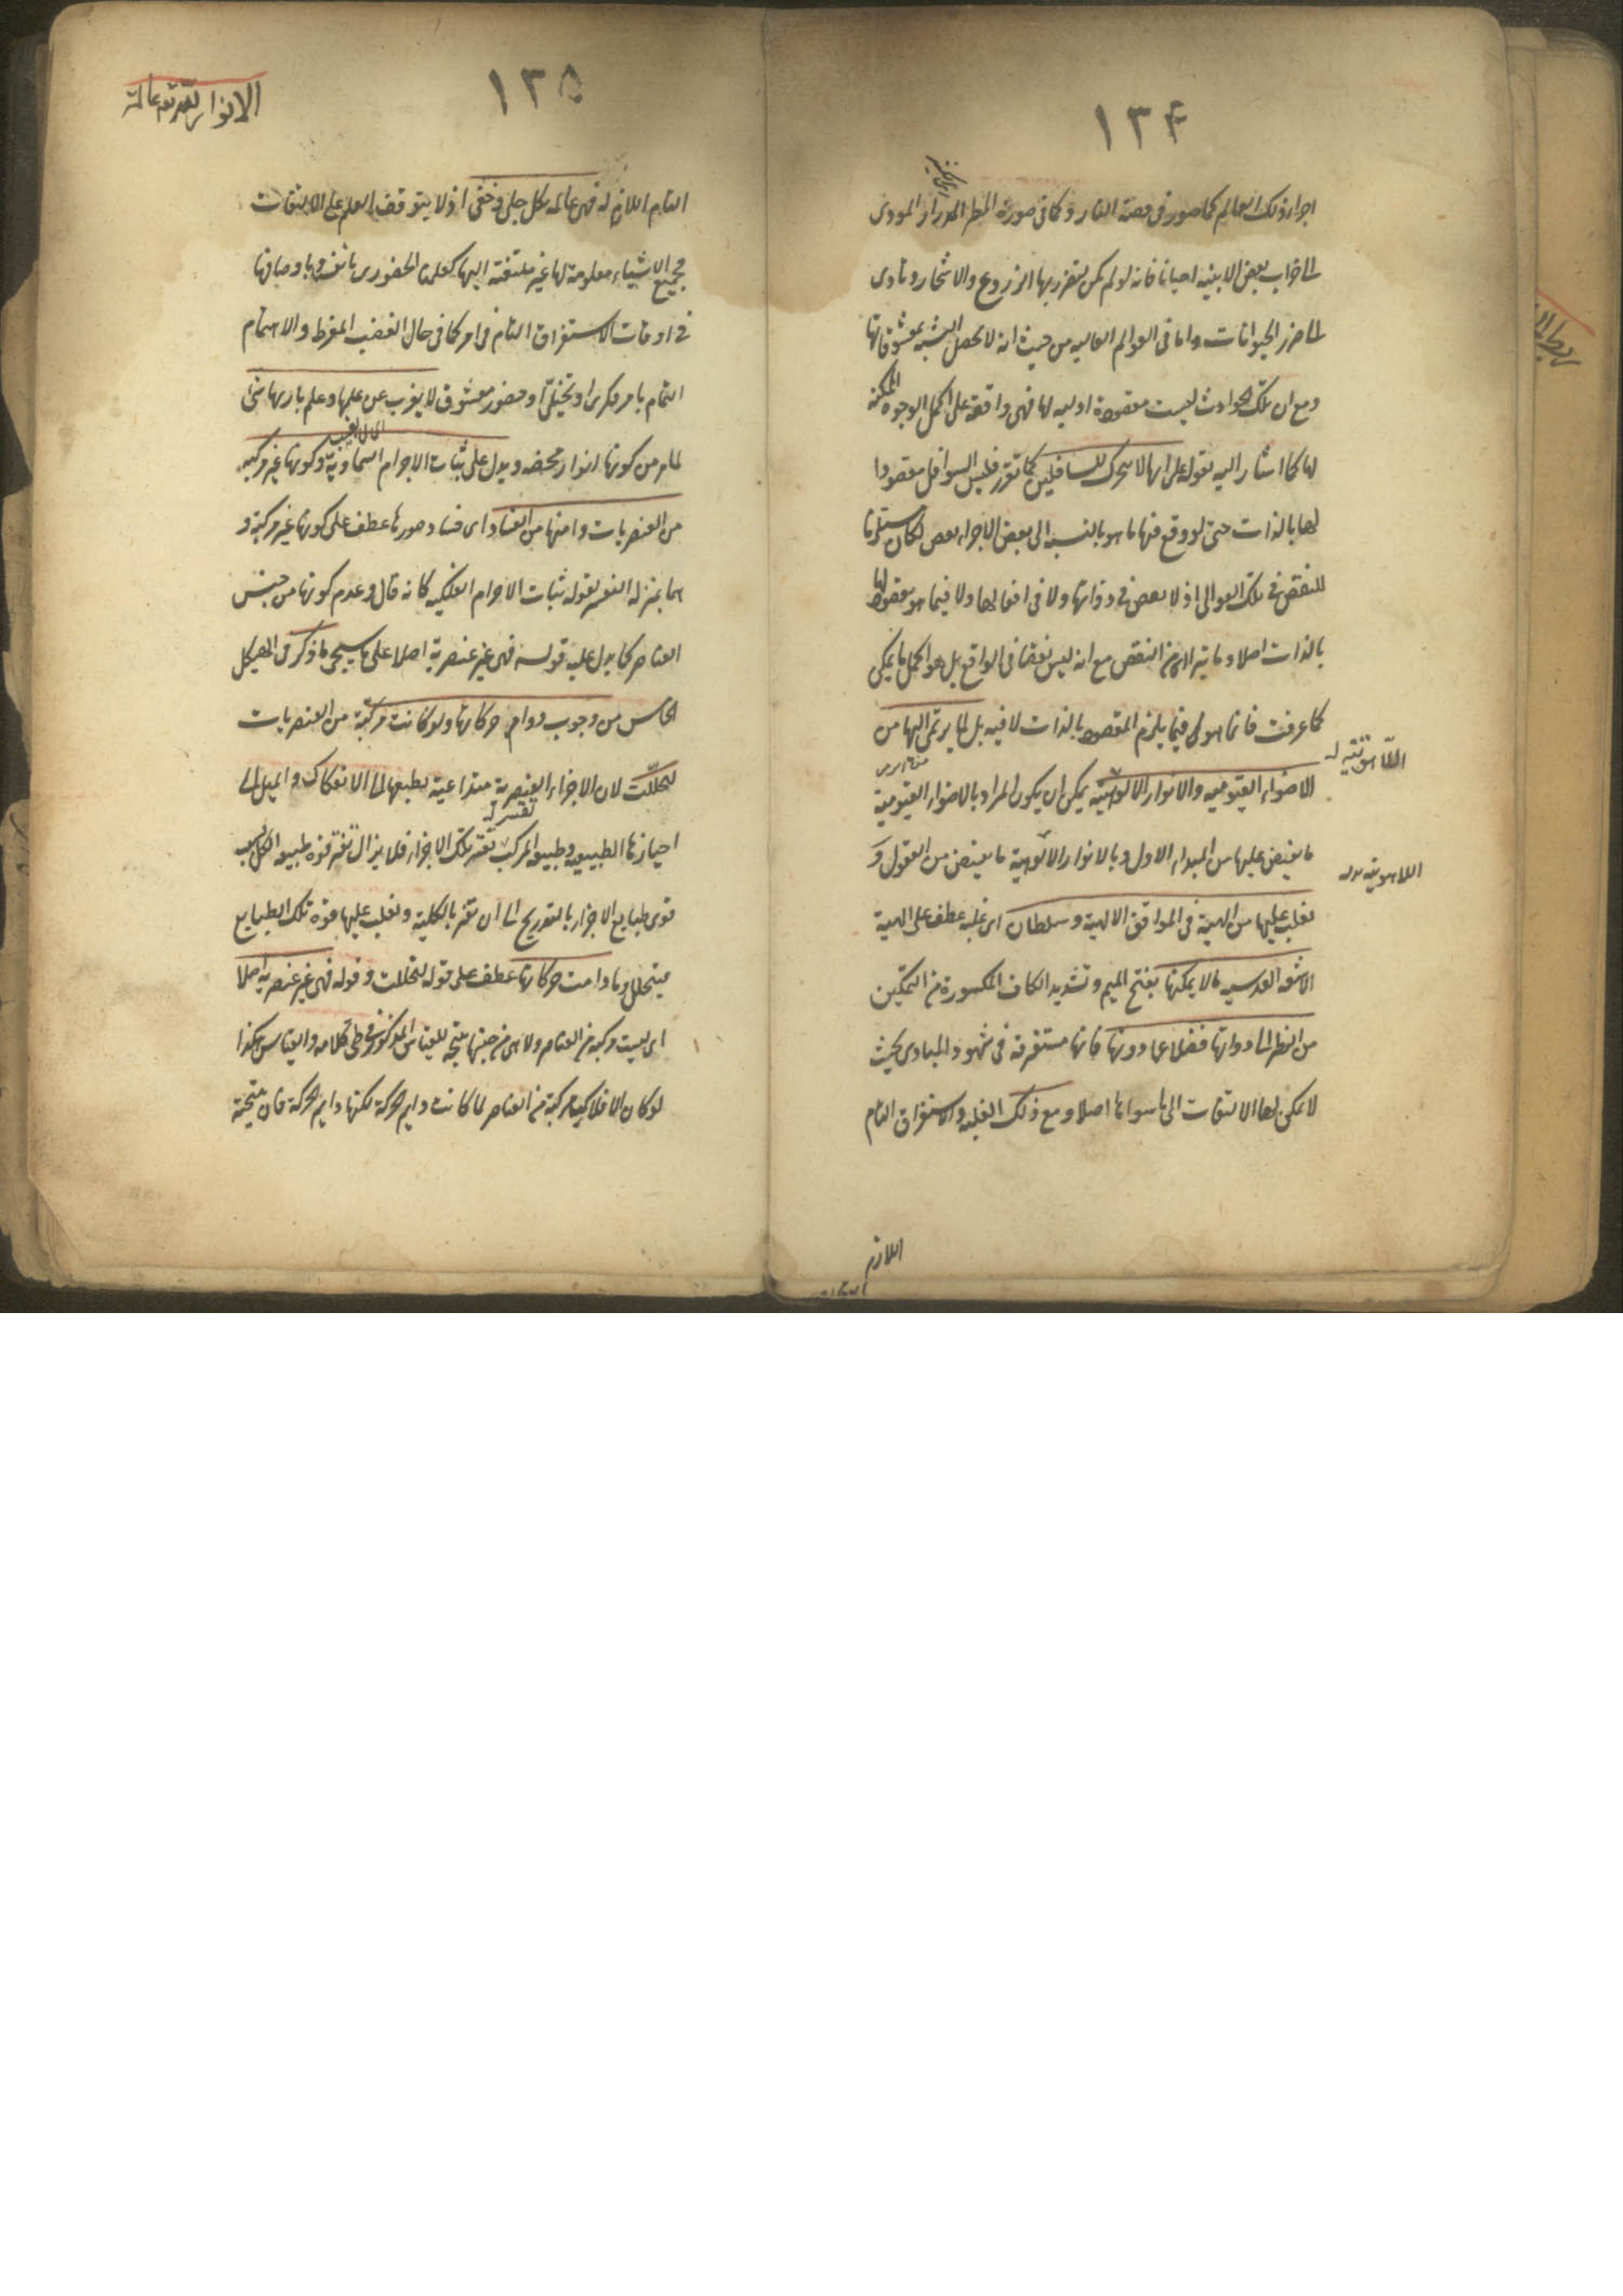 ١٣۴
اجزاء ذلك العالم كما صور فى قصة النار و كما فى صورة المطر المدرار المودى
الى خراب بعض الابنيه احيانا فانه لو لم يكن يتضرر بها الزروع والاشجار و تادى
الى ضرر الحيوانات و اما فى العوالم العاليه من حيث انه لا يحصل التشبه بمعشوقاتها
و مع ان تلك الحوادث ليست مقصودة اوليه لها فهى واقعة على اكمل الوجوه الممكنه
لها كما اشار اليه بقوله على انها لا تتحرك للسافلين كما تقرر فليس السوافل مقصودا
لها بالذات حتى لو وقع فيها ما هو بالنسبه الى بعض الاجزاء نقص لكان مستلزما
للنقص فى تلك العوالى اذ لا نقص فى ذواتها ولا فى افعالها ولا فيما هو مقصود لها
بالذات اصلا و ما يترااى من النقص مع انه ليس نقصا فى الواقع بل هو اكمل ما يمكن
كما عرفت فانما هو فيما يلزم المقصود بالذات لا فيه بل لما يرتمى اليها من
الاضواء القيوميه والانوار الالوهيه يمكن ان يكون المراد بالاضواء القيومية
ما يفيض عليها من المبداء الاول و بالانوار الالوهية ما يفيض من العقول و
اللاهوتية
تغلب عليها من الهيبة فى المواقف الالهية و سلطان اى غلبه عطف على الهيبة
الاشعه القدسيه ما لا يمكنها بفتح الميم و تشديد الكاف المكسورة من التمكين
من النظر الى ذواتها فضلا عما دونها فانها مستغرقه فى شهود المبادى بحيث
لا يمكن لها الالتفات الى ما سواها اصلا و مع ذلك الغلبه و الاستغراق التام
اللازم
١٣۵
التام اللازم له فهى عالمه بكل جلى و خفى اذ لا يتوقف العلم على الالتفات
فجميع الاشياء معلومة لها غير ملتفته اليها كعلمنا الحضورى بانفسنا و باوصافها
فى اوقات الاستغراق التام فى امر كما فى حال الغضب المفرط و الاهتمام
التمام بامر فكرى او تخيلى او حضور معشوق لا يعزب عن علمها و علم باريها شئ
لما مر من كونها انوار محضه و يدل على ثبات الاجرام السماوية و كونها غير مركبه
من العنصريات و امنها من الفساد اى فساد صورها عطف على كونها غير مركبة و
هما بمنزله التفسير لقوله ثبات الاجرام الفلكيه كانه قال و عدم كونها من جنس
العناصر كما يدل عليه قوله فهى غير عنصرية اصلا على ما سيجئ ما ذكر فى الهيكل
الخامس من وجوب دوام حركاتها و لو كانت مركبة من العنصريات
لتحللت لان الاجزاء العنصرية متداعية بطبعها الى الانفكاك و الميل الى
احيازها الطبيعيه و طبيعه المركب تقسر تلك الاجزاء فلا يزال تفتر قوة طبيعه الكل بسبب
قوى طبايع الاجزاء بالتدريج الى ان تفتر بالكلية و تغلب عليها قوة تلك الطبايع
فيتحلل و ما دامت حركاتها عطف على قوله لتحللت و قوله فهى غير عنصرية اصلا
اى ليست مركبه من العناصر و لا هى من جنسها نتيجة للقياس المذكور فى طى كلامه و القياس هكذا
لو كان الافلاك مركبة من العناصر لما كانت دايم الحركة لكنها دايم الحركة فان نتيجة